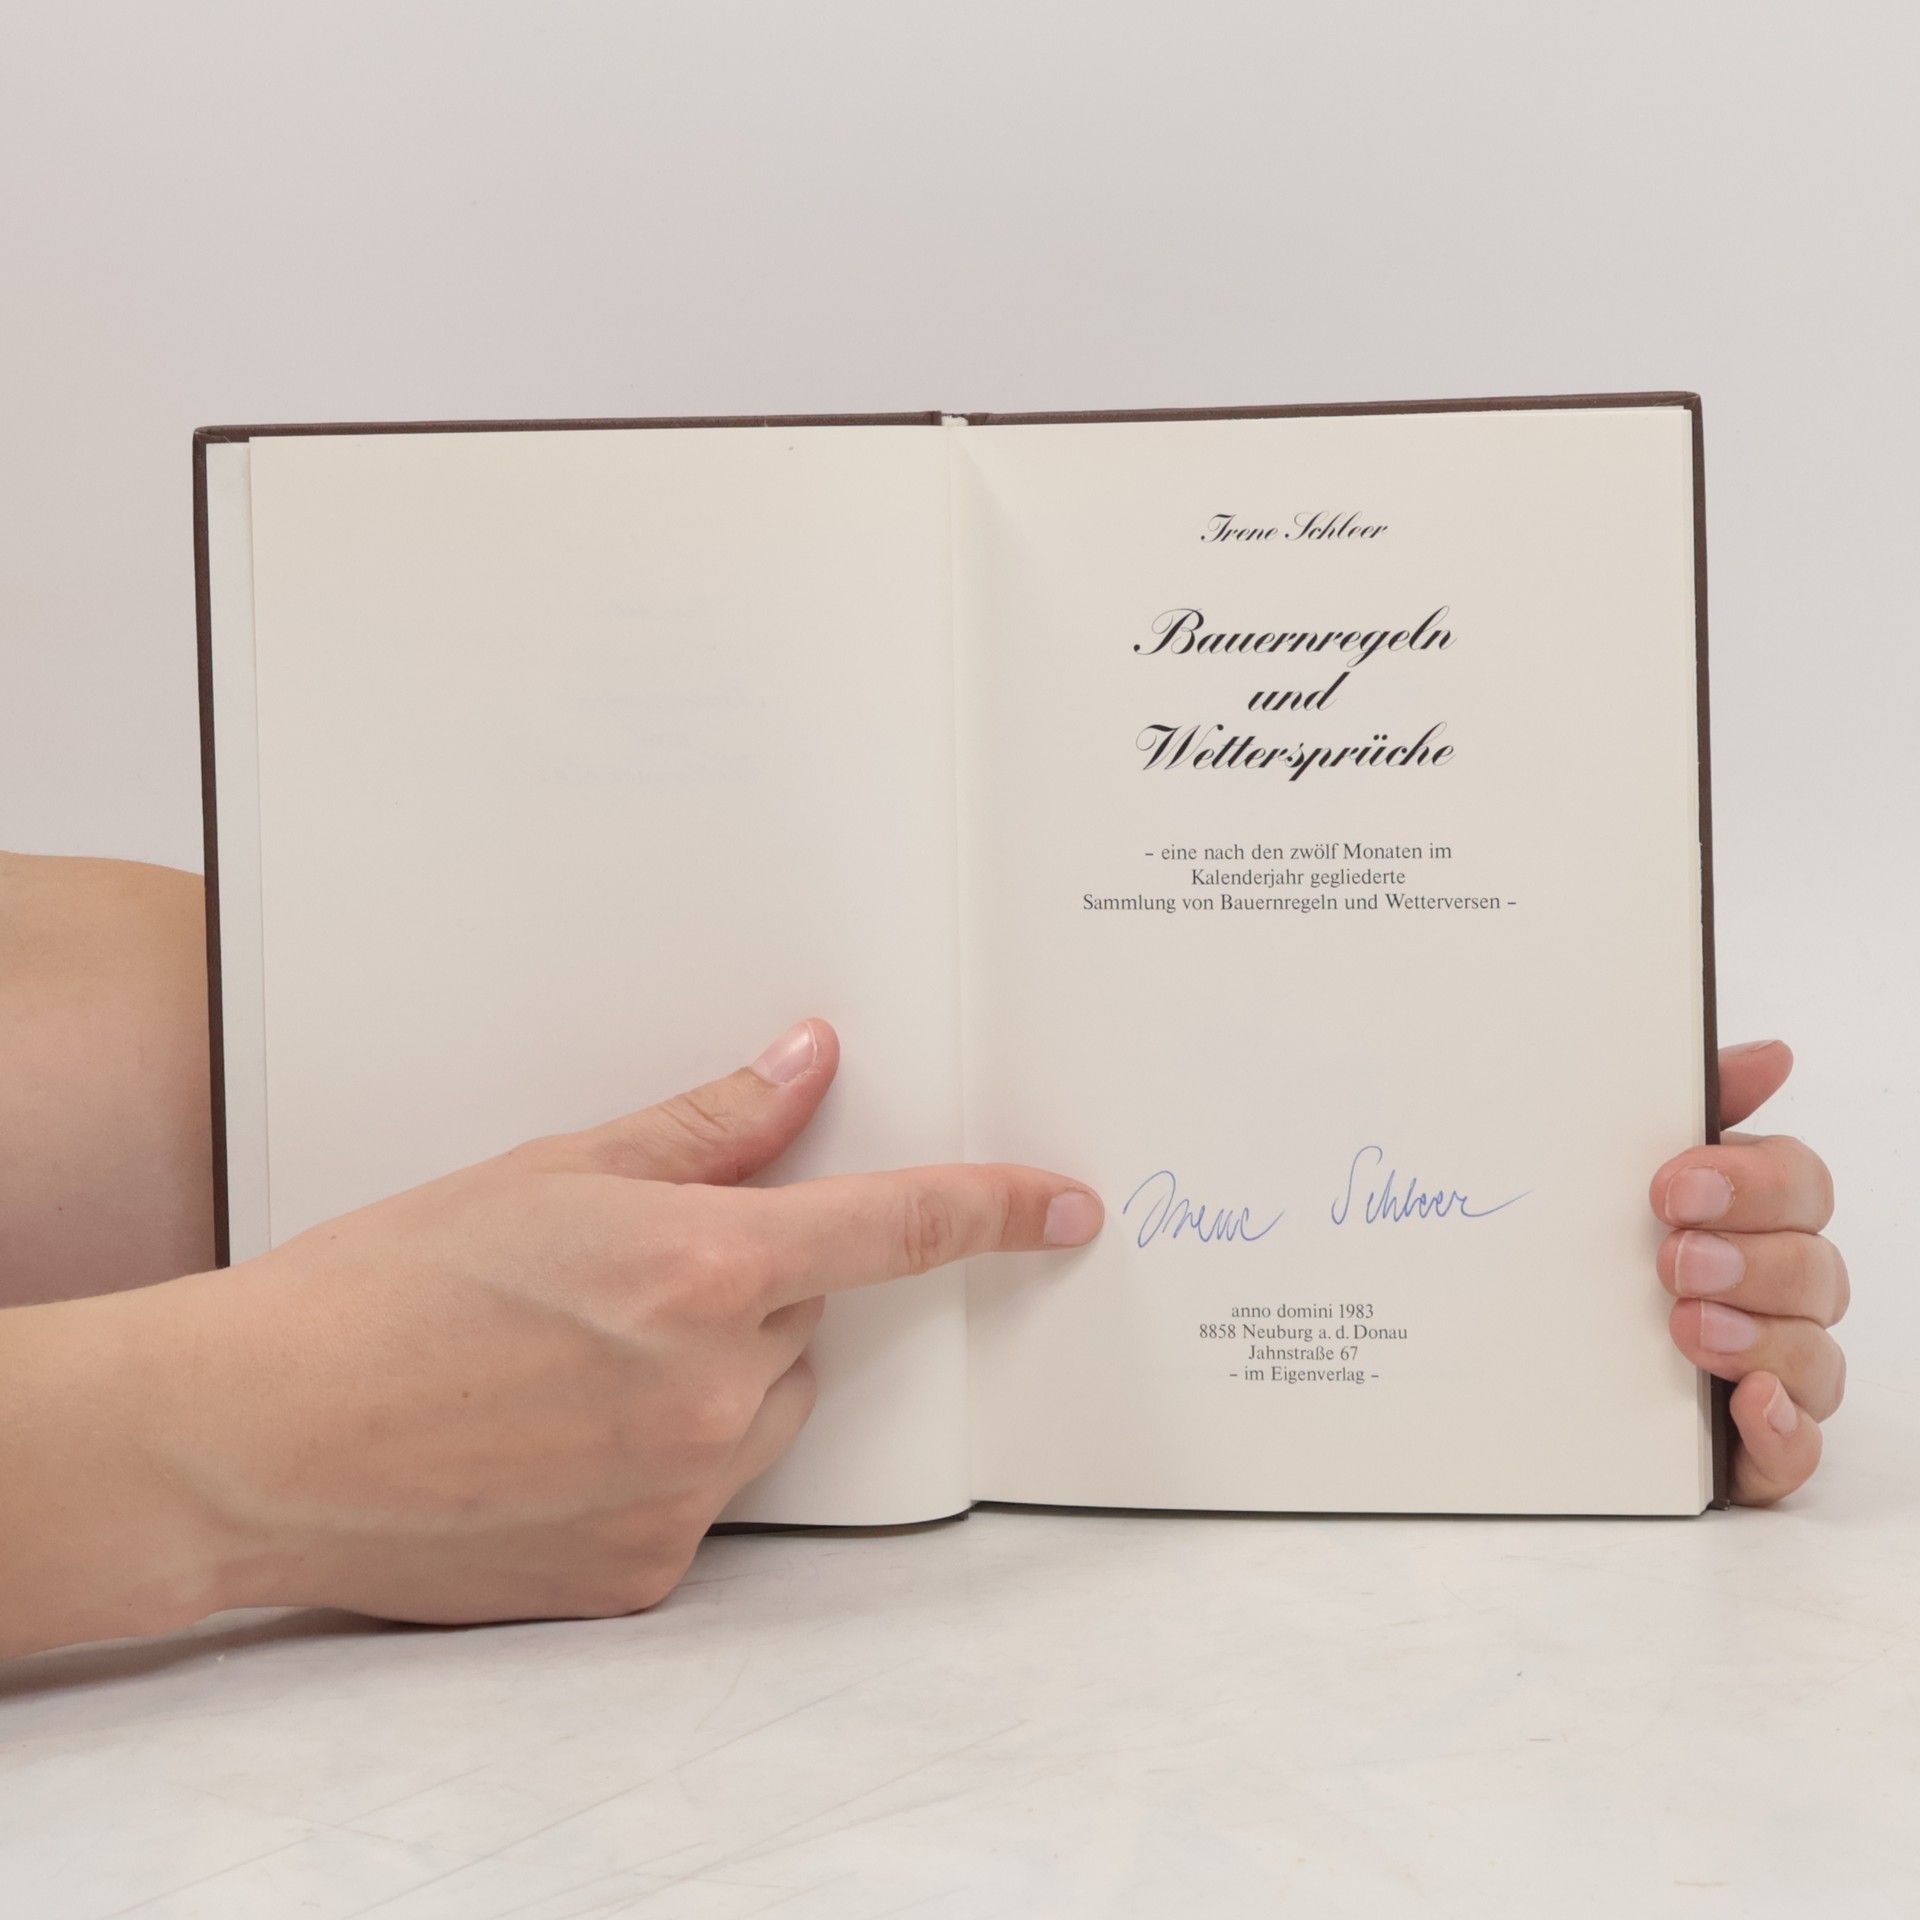 Irene Schleer
Bauernregeln
und
Wettersprüche
– eine nach den zwölf Monaten im
Kalenderjahr gegliederte
Sammlung von Bauernregeln und Wetterversen –
Irene Schleer
anno domini 1983
8858 Neuburg a. d. Donau
Jahnstraße 67
– im Eigenverlag –